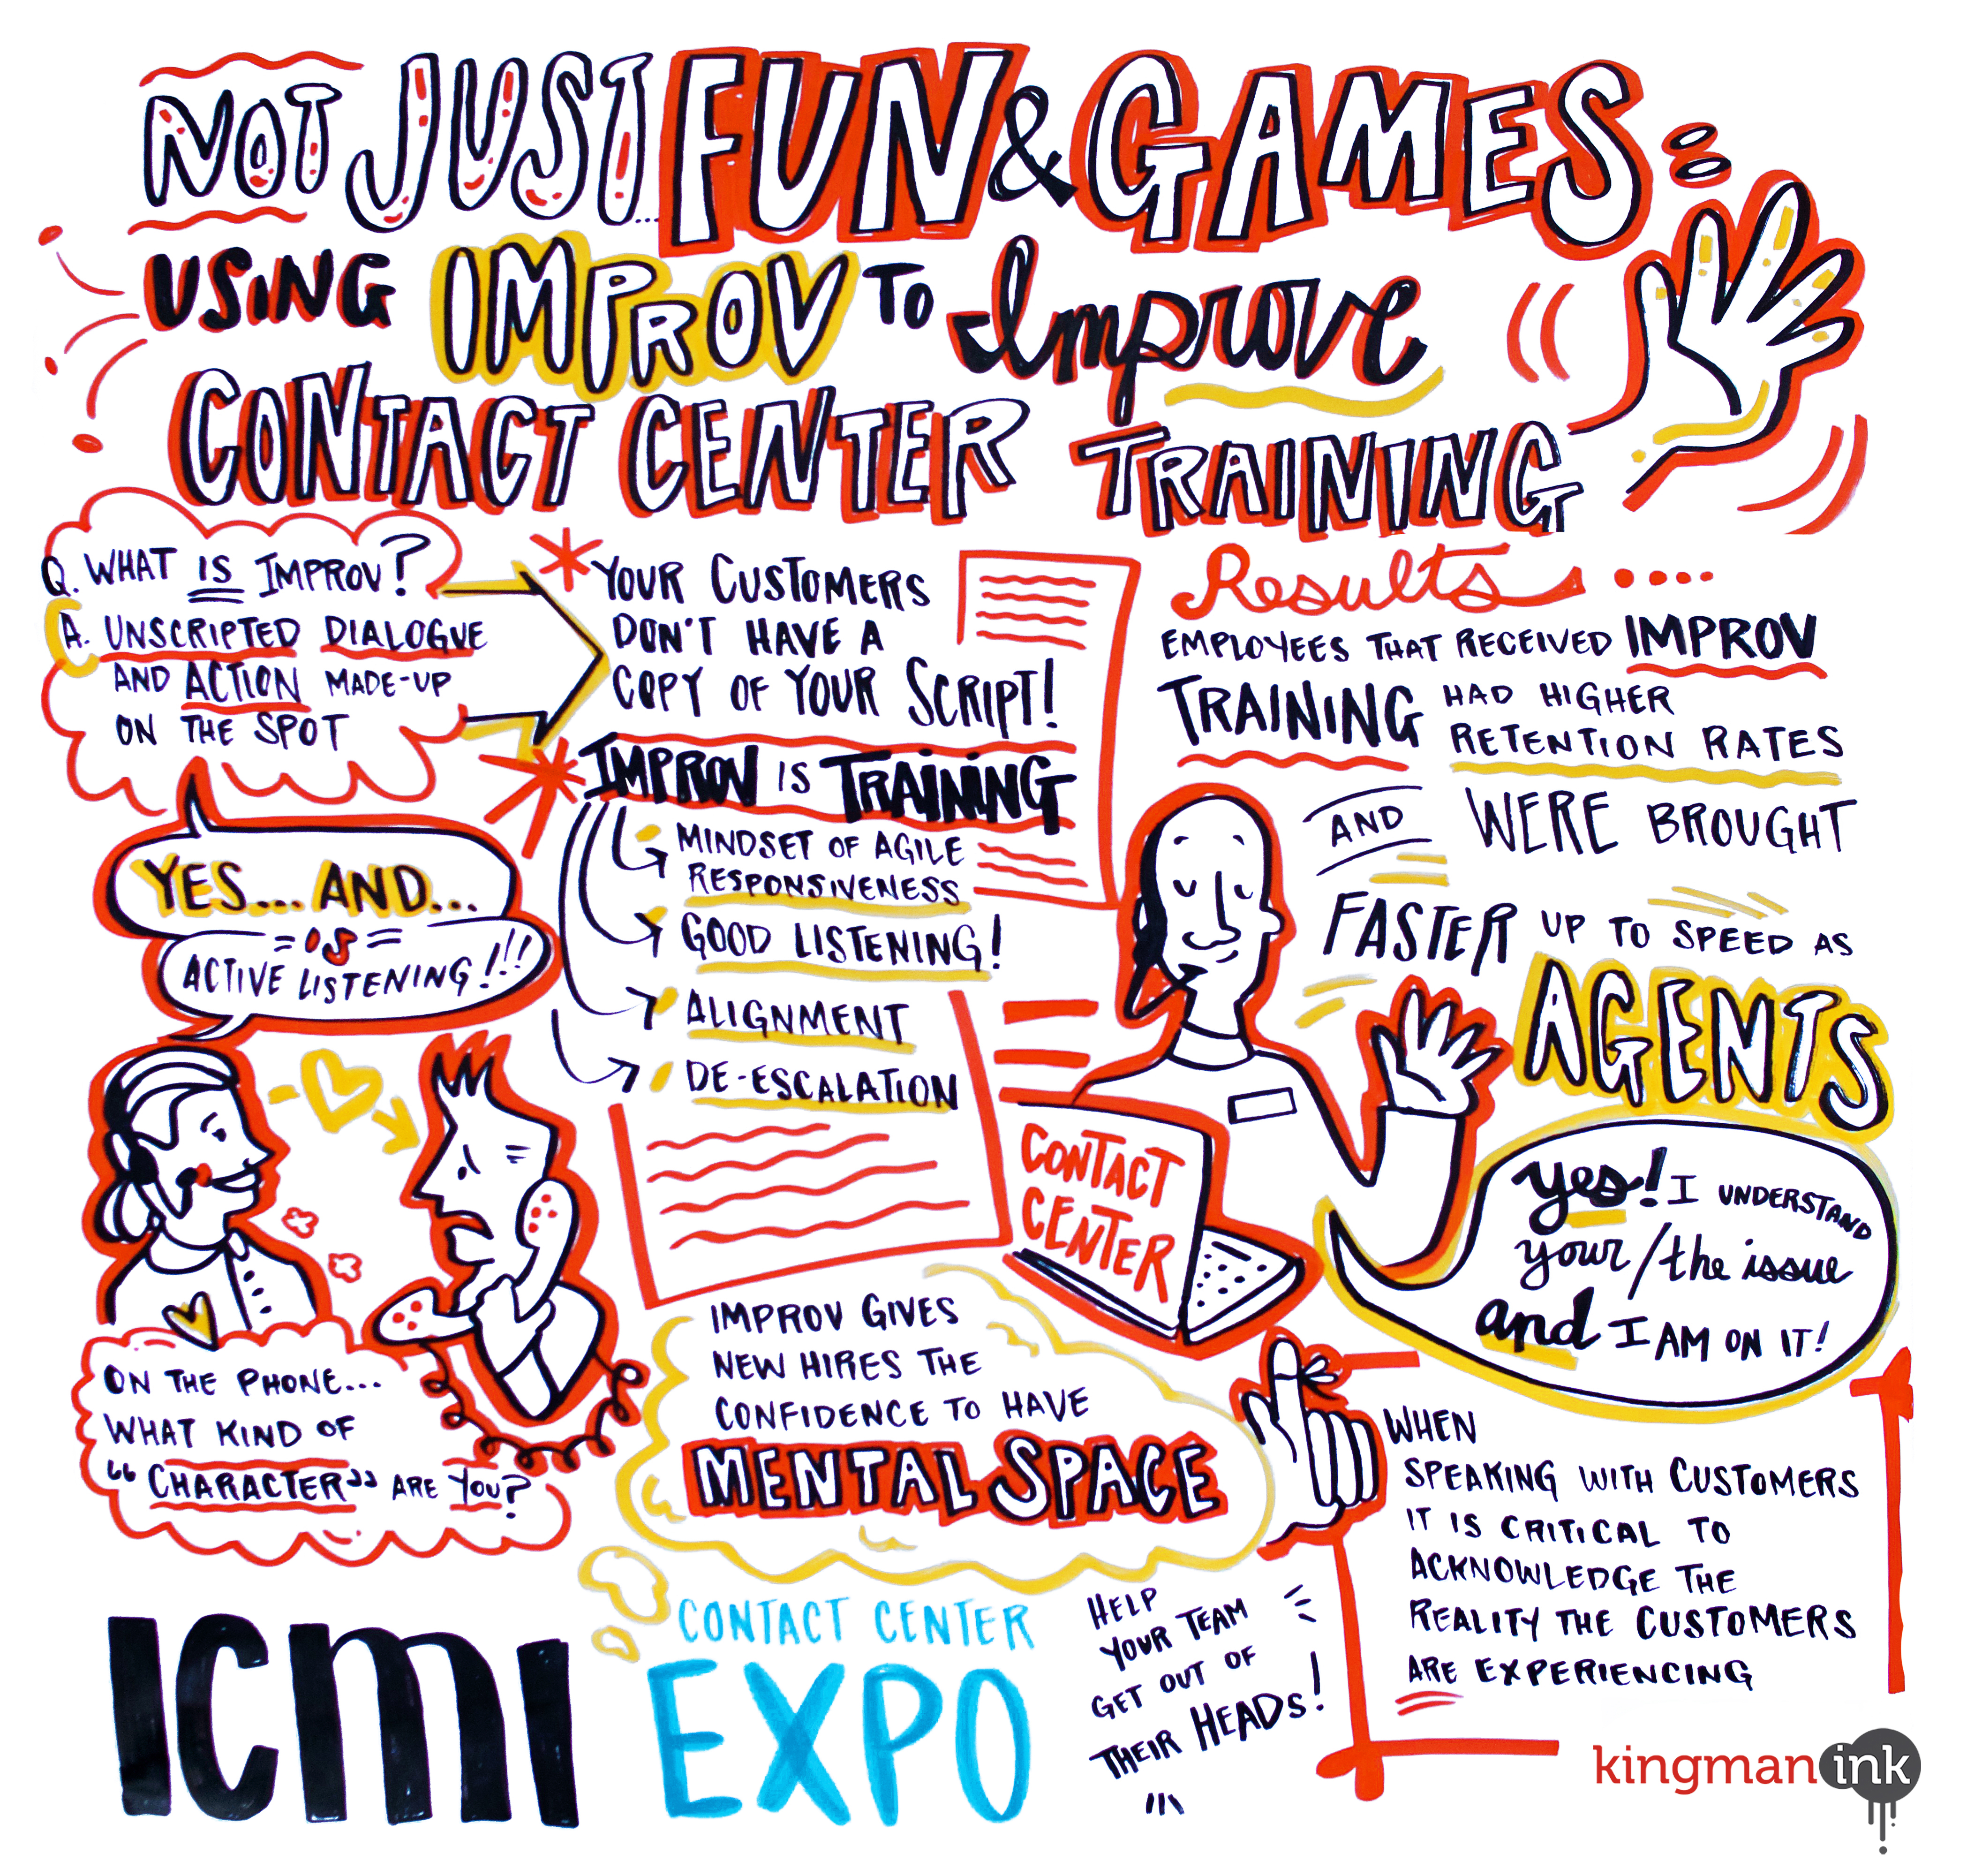 NOT JUST... FUN & GAMES:
USING IMPROV TO Improve
CONTACT CENTER TRAINING
Q. WHAT IS IMPROV?
A. UNSCRIPTED DIALOGUE
AND ACTION MADE-UP
ON THE SPOT
YES... AND...
=IS=
ACTIVE LISTENING!!!
ON THE PHONE...
WHAT KIND OF
"CHARACTER" ARE YOU?
* YOUR CUSTOMERS
DON'T HAVE A
COPY OF YOUR SCRIPT!
* IMPROV IS TRAINING
MINDSET OF AGILE
RESPONSIVENESS
GOOD LISTENING!
ALIGNMENT
DE-ESCALATION
IMPROV GIVES
NEW HIRES THE
CONFIDENCE TO HAVE
MENTAL SPACE
Results....
EMPLOYEES THAT RECEIVED IMPROV
TRAINING HAD HIGHER
RETENTION RATES
AND WERE BROUGHT
FASTER UP TO SPEED AS
AGENTS
CONTACT
CENTER
yes! I UNDERSTAND
your/the issue
and I AM ON IT!
WHEN
SPEAKING WITH CUSTOMERS
IT IS CRITICAL TO
ACKNOWLEDGE THE
REALITY THE CUSTOMERS
ARE EXPERIENCING
ICMI
CONTACT CENTER
EXPO
HELP
YOUR TEAM
GET OUT OF
THEIR HEADS!
kingman ink